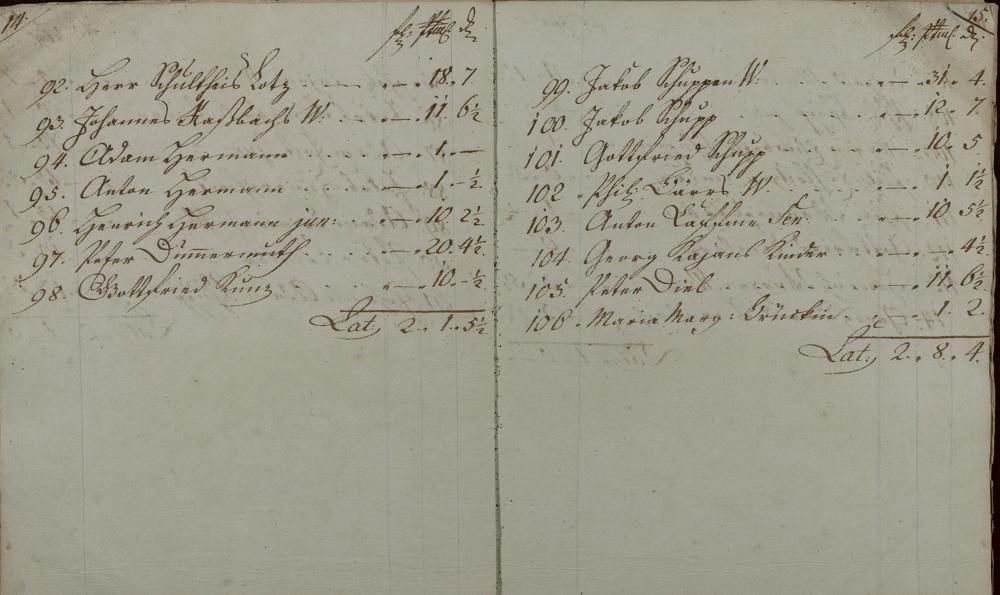 14.
92. Herr Schultheis Lotz — 18. 7.
93. Johannes Haßbachs W. — 11. 6½
94. Adam Hermann — 1. —
95. Anton Hermann — 1. - ½.
96. Henrich Hermann jun: — 10. 2½
97. Peter Dünnermuth — 20. 4½
98. Gottfried Kunz — 10. - ½
Lat. 2. 1. 5½
15.
99. Jakob Schuppen W. — 31. 4.
100. Jakob Schupp — 12. 7.
101. Gottfried Schupp — 10. 5
102. Phil: W. — 1. 1½
103. Anton Sen: — 10. 5½
104. Georg Kajans Kinder — 4½
105. Peter Diel — 11. 6½
106. Maria Marg: — 1. 2.
Lat: 2. 8. 4.